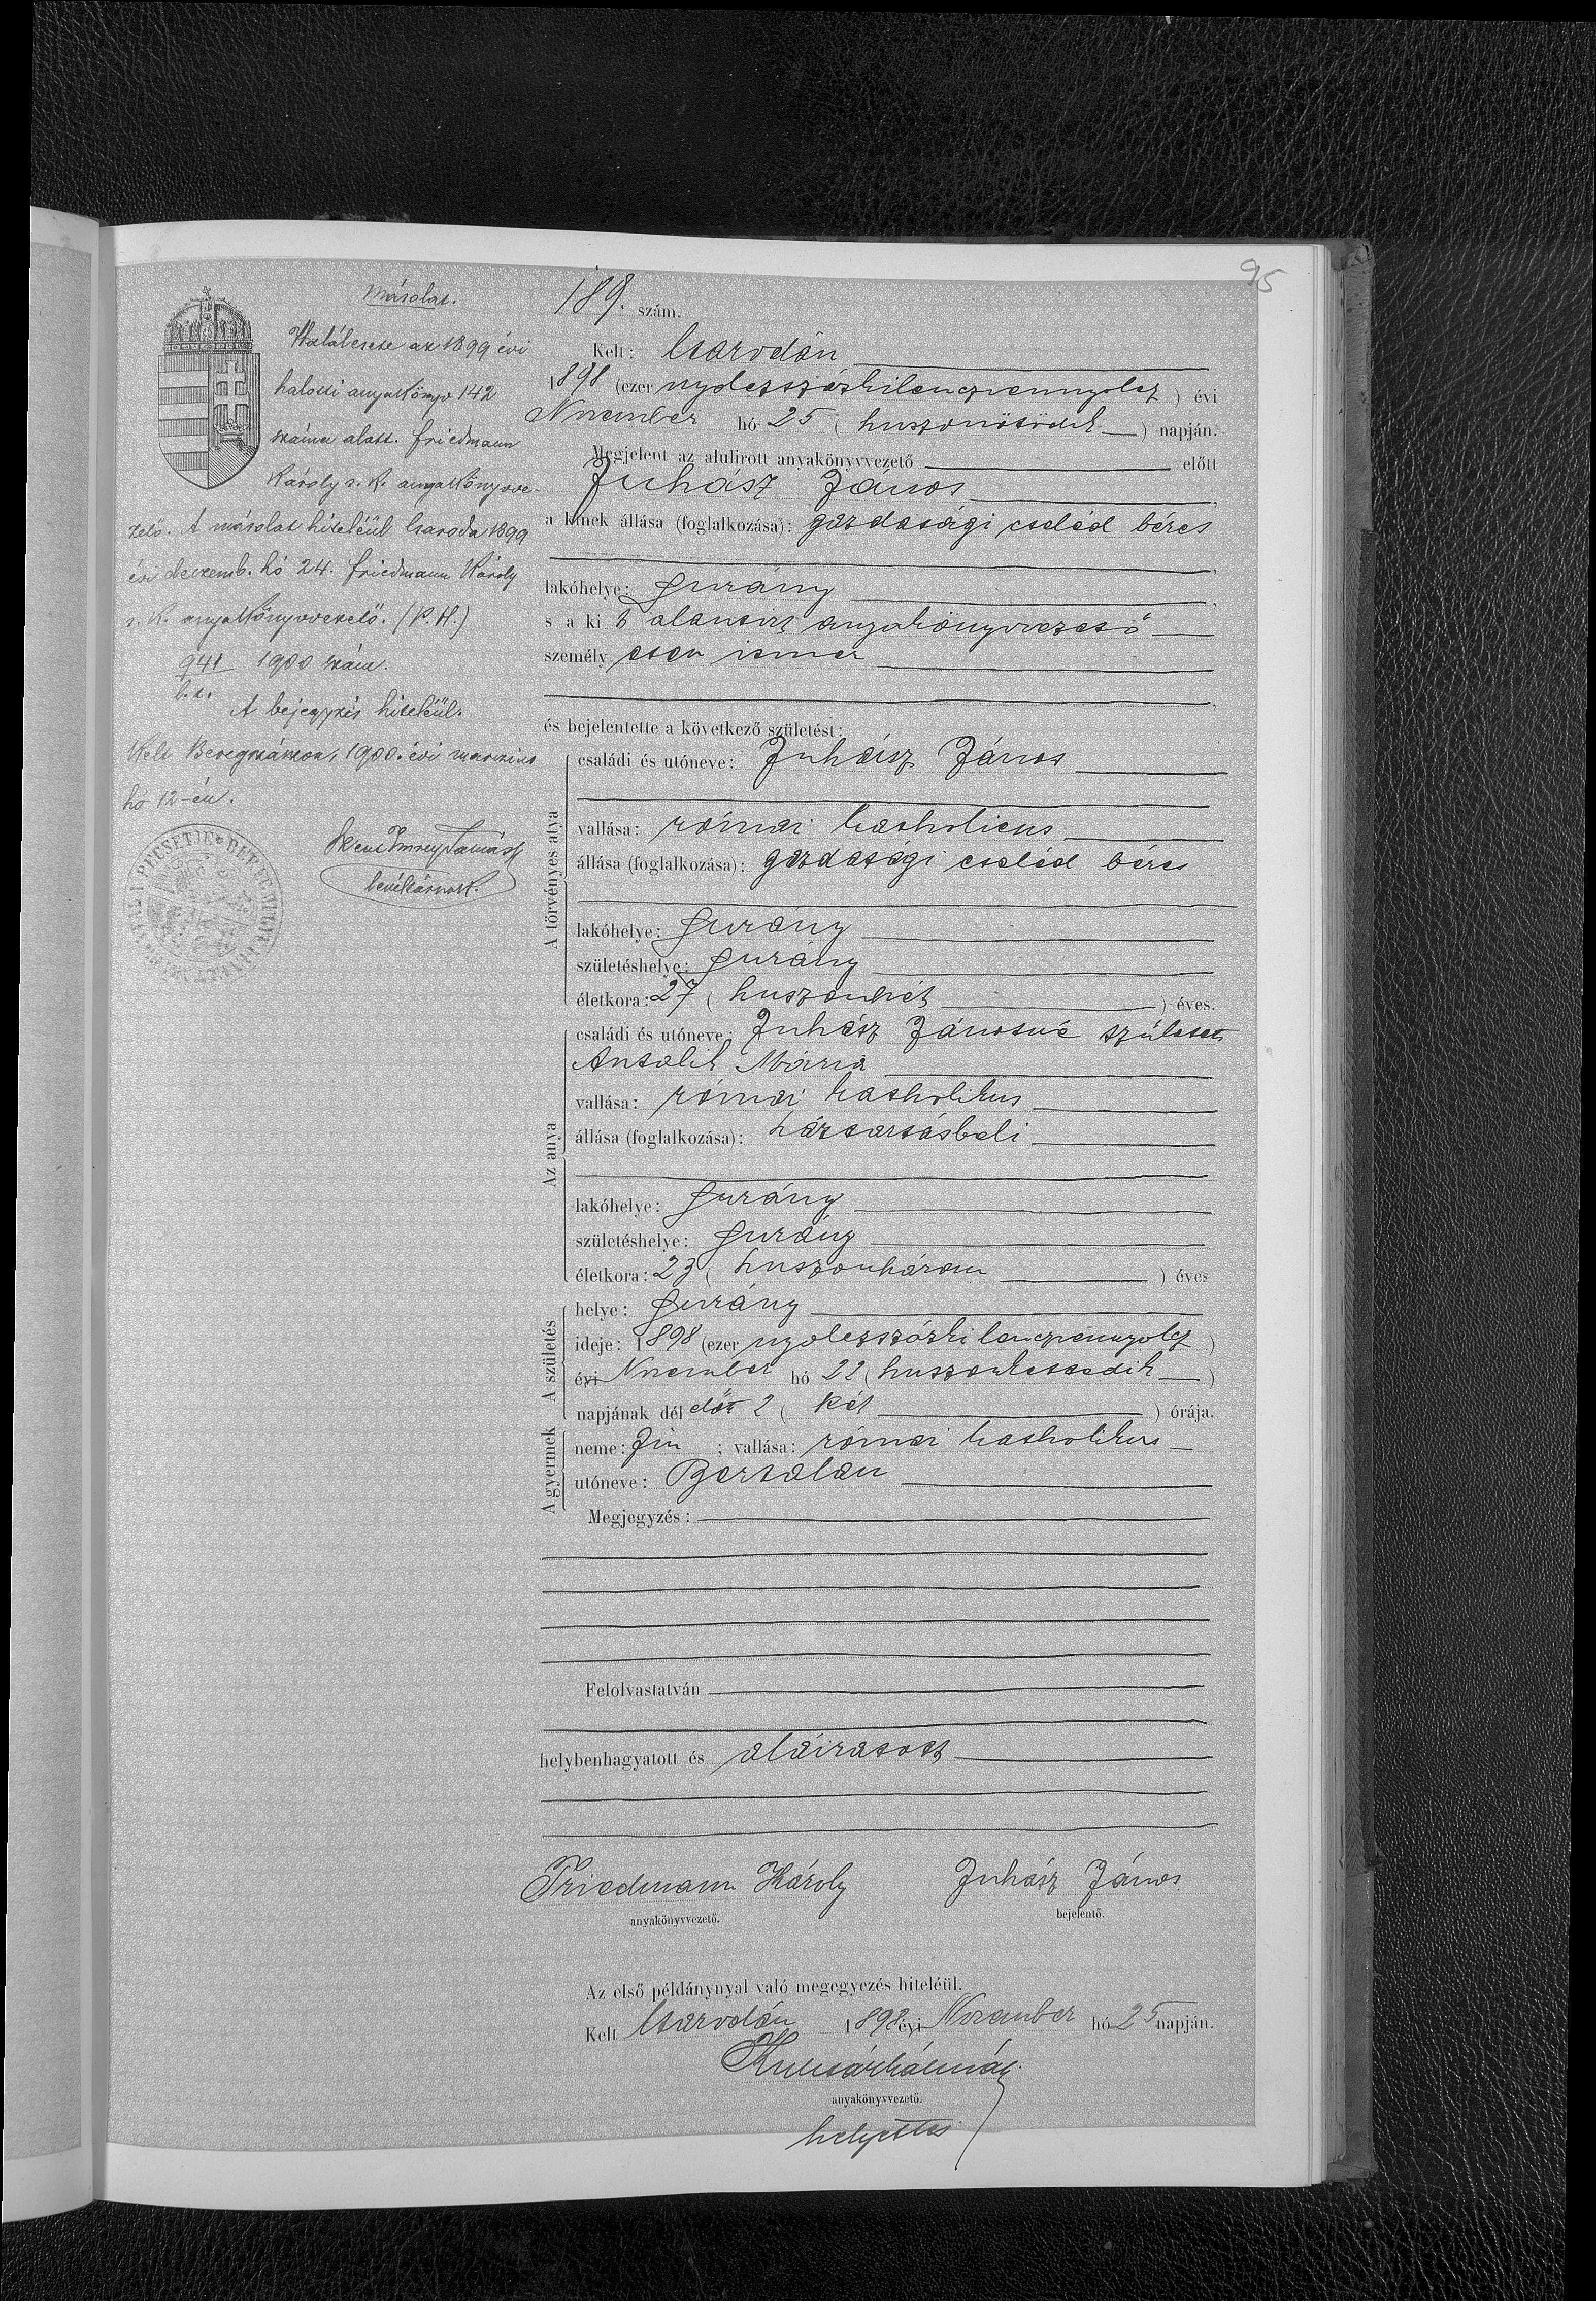 95
Másolat.
Halálesete az 1899 évi
halotti anyakönyv 142
száma alatt. Friedmann
Károly s. k. anyakönyvve-
zető. A másolat hiteléül Csaroda 1899
évi decemb. hó 24. Friedmann Károly
s. k. anyakönyvvezető. (P. H.)
941 1900 szám.
A bejegyzés hiteléül.
Kelt Beregszászon, 1900. évi marczius
hó 12-én.
levéltárnok.
189. szám.
Kelt: Csarodán
1898 (ezer nyolczszázkilenczvennyolcz) évi
November hó 25 (huszonötödik) napján.
Megjelent az alulirott anyakönyvvezető előtt
Juhász János
a kinek állása (foglalkozása): gazdasági cseléd béres
lakóhelye: Surány
s a ki t alantirt anyakönyvvezető
személyesen ismer
és bejelentette a következő születést:
A törvényes atya
családi és utóneve: Juhász János
vallása: római katholicus
állása (foglalkozása): gazdasági cseléd béres
lakóhelye: Surány
születéshelye: Surány
életkora: 27 (huszonhét) éves.
Az anya
családi és utóneve: Juhász Jánosné született
Antalik Mária
vallása: római katholikus
állása (foglalkozása): háztartásbeli
lakóhelye: Surány
születéshelye: Surány
életkora: 23 (huszonhárom) éves
A születés
helye: Surány
ideje: 1898 (ezer nyolczszázkilenczvennyolcz)
évi November hó 22 (huszonkettedik)
napjának dél előtt 2 (két) órája.
A gyermek
neme: fiu; vallása: római katholikus
utóneve: Bertalan
Megjegyzés:
Felolvastatván
helybenhagyatott és aláiratott
Friedmann Károly Juhász János
anyakönyvvezető. bejelentő.
Az első példánynyal való megegyezés hiteléül.
Kelt Csarodán 1898 évi November hó 25 napján.
anyakönyvvezető.
helyettes